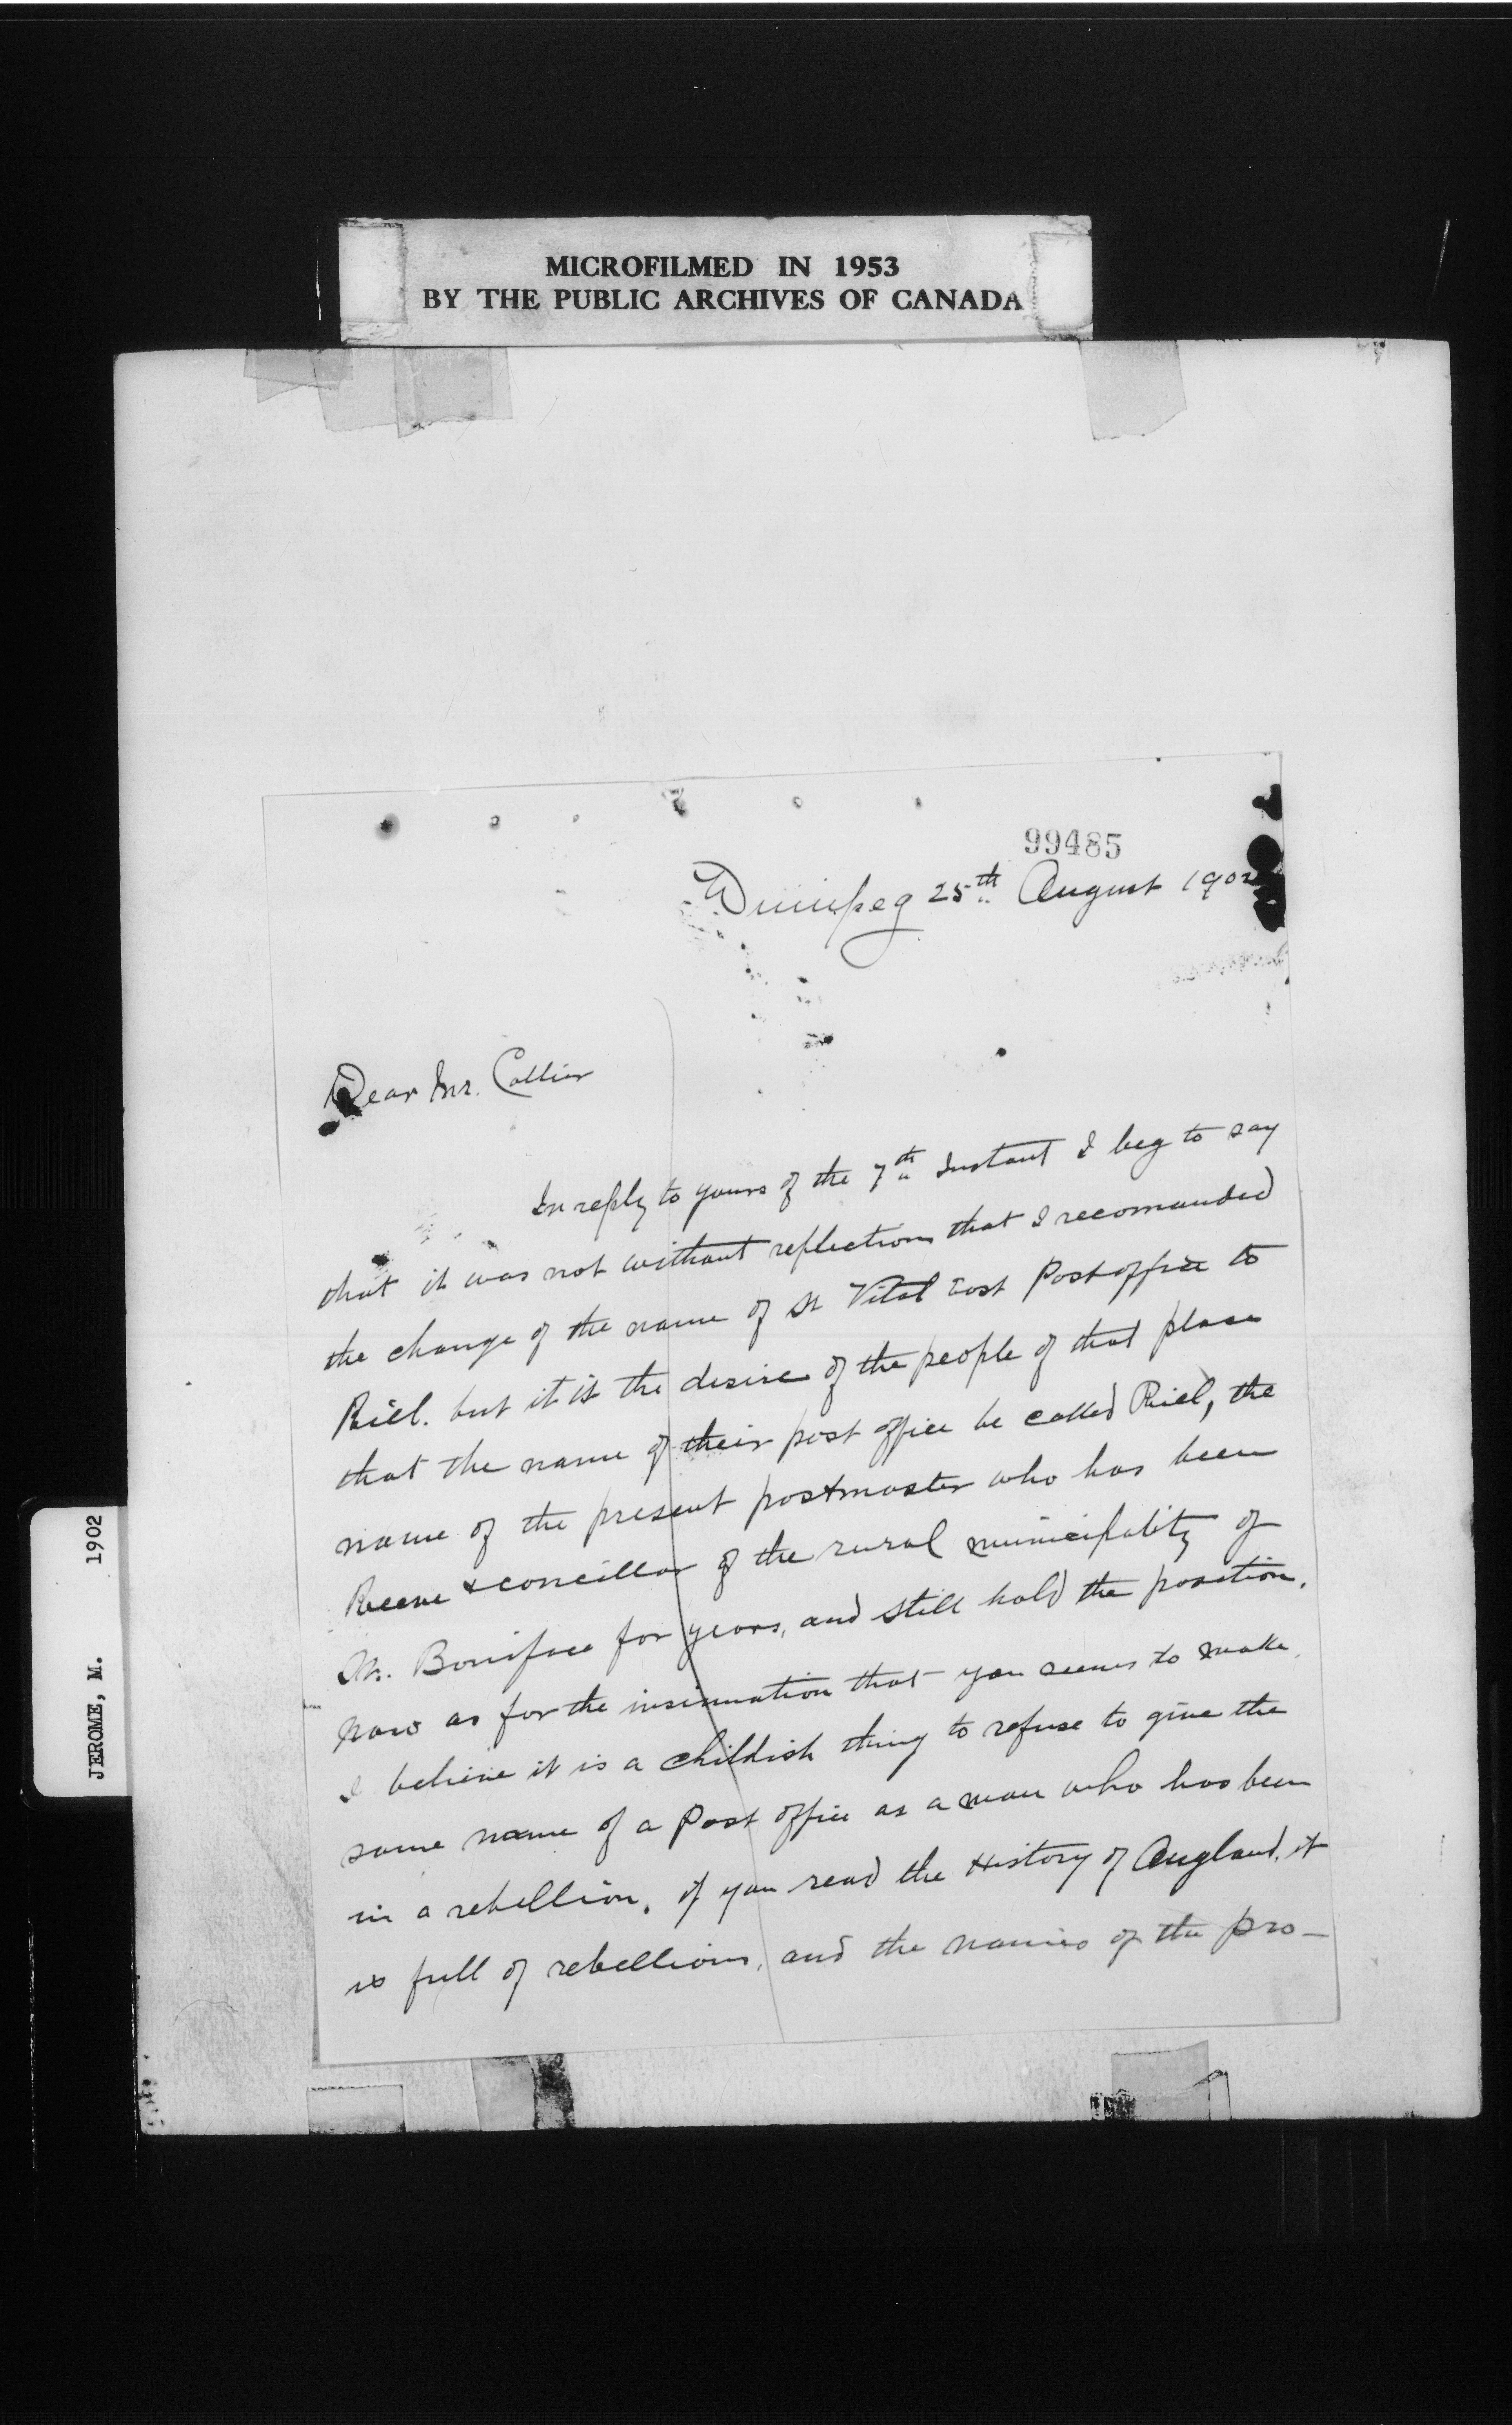 MICROFILMED IN 1953
BY THE PUBLIC ARCHIVES OF CANADA
99485
Winnipeg 25th August 1902
Dear Mr. Collier
In reply to yours of the 7th Instant I beg to say
that it was not without reflection that I recomanded
the change of the name of St Vital East Postoffice to
Riel. but it is the desire of the people of that place
that the name of their post office be called Riel, the
name of the present postmaster who has been
Reeve & concillor of the rural municipality of
St. Boniface for years, and still hold the position.
Now as for the insinuation that you seems to make
I believe it is a childish thing to refuse to give the
same name of a Post office as a man who has been
in a rebellion. if you read the History of England, it
is full of rebellions, and the names of the pro-
JEROME, M. 1902